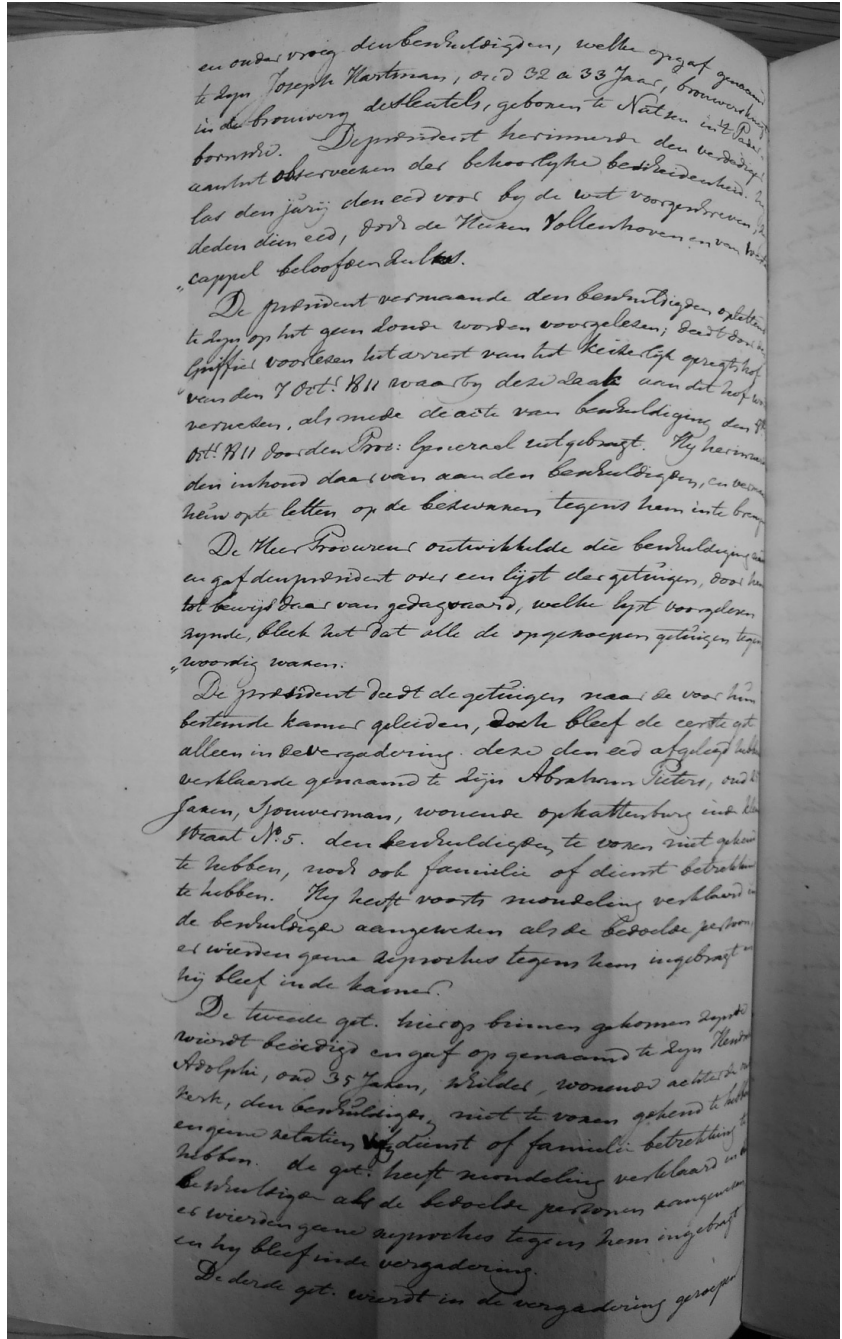 en ondervroeg den beschuldigden, welke opgaf genaamd
te zyn Joseph Hartman, oud 32 a 33 Jaar, brouwersknegt
in de brouwery de Sleutels, geboren te Natzen in 't Pader-
bornsche. De president herinnerde den verdediger
aan het observeeren der behoorlyke bescheidenheid. hij
las den jurij den eed voor by de wet voorgeschreven,
deden dien eed, doch de Heeren Vollenhoven en van
„cappel beloofden zulks.
De president vermaande den beschuldigden oplettend
te zyn op het geen zoude worden voorgelezen; deedt door den
Griffier voorlezen het arrest van het Keizerlyk geregtshof
van den 7 Oct.r 1811 waarby deze zaak aan dit hof
verwezen, als mede de acte van beschuldiging den
Oct.r 1811 door den Proc: Generael uitgebragt. Hy herinnerde
den inhoud daar van aan den beschuldigden, en
hem op te letten op de bezwaren tegens hem in te brengen
De Heer Procureur ontwikkelde die beschuldiging
en gaf den president over een lijst der getuigen, door hem
tot bewijs daar van gedagvaard, welke lyst voorgelezen
zynde, bleek het dat alle de opgeroepen getuigen tegen
„woordig waren.
De president deedt de getuigen naar de voor hun
bestemde kamer geleiden, doch bleef de eerste get
alleen in de vergadering. deze den eed afgelegd hebbende
verklaarde genaamd te zijn Abraham Pieters, oud
Jaren, Sjouwerman, wonende op Kattenburg in de
straat No. 5. den beschuldigden te voren niet gekend
te hebben, noch ook familie of dienst betrekking
te hebben. Hy heeft voorts mondeling verklaard en
de beschuldigde aangewezen als de bedoelde persoon,
er wierden geene reproches tegens hem ingebragt en
hij bleef in de kamer.
De tweede get. hierop binnen gekomen zynde
wierdt beëedigd en gaf op genaamd te zyn Hendrik
Adolphi, oud 35 Jaren, schilder, wonende achter de
kerk, den beschuldigden niet te voren gekend te hebben
en geene relatien dienst of familie betrekking te
hebben. de get. heeft mondeling verklaard en
beschuldigde als de bedoelde persoon aangewezen
er wierden geene reproches tegens hem ingebragt
en hy bleef in de vergadering.
De derde get. wierdt in de vergadering geroepen